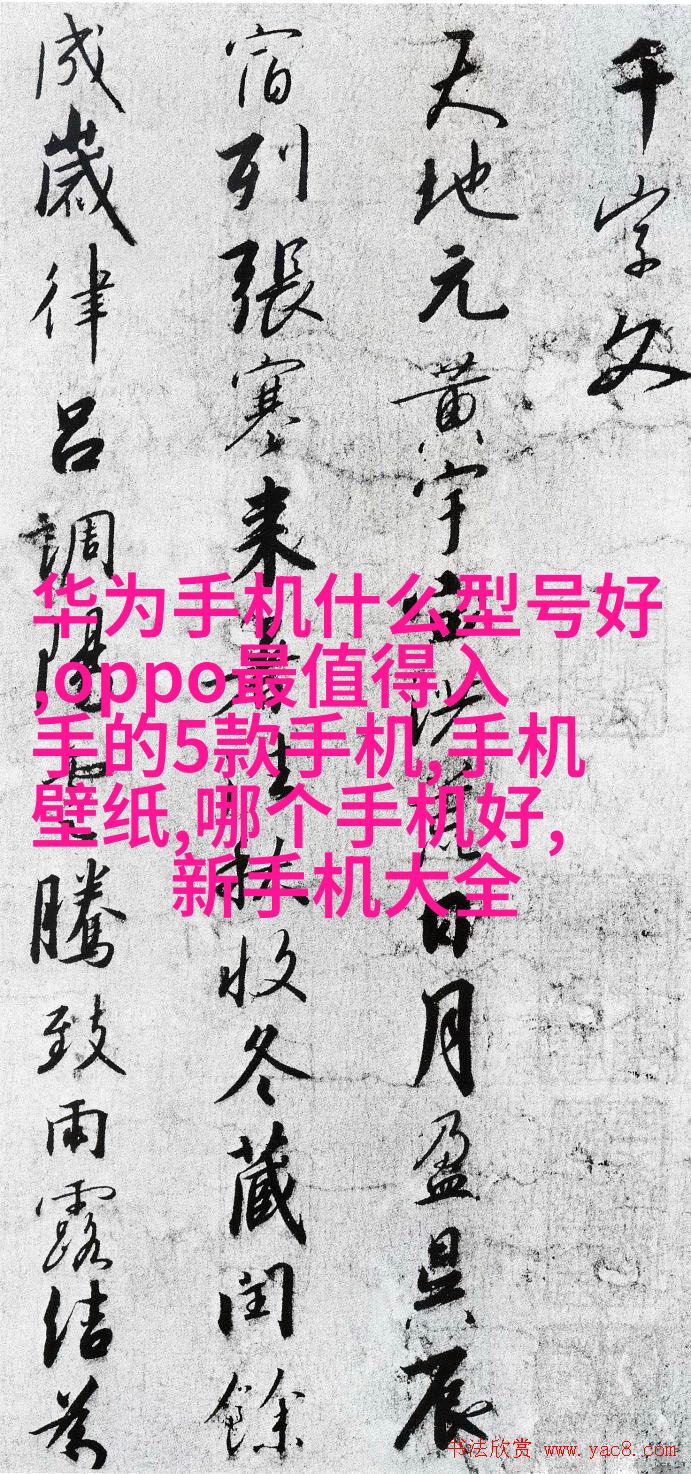 千字文
天地元黄宇宙洪荒日月盈昃辰
宿列張寒来暑往秋收冬藏閏餘
成歲律吕調陽雲騰致雨露結為
华为手机什么型号好
,oppo最值得入
手的5款手机,手机
壁纸,哪个手机好,
新手机大全
书法欣赏 www.yac8.com